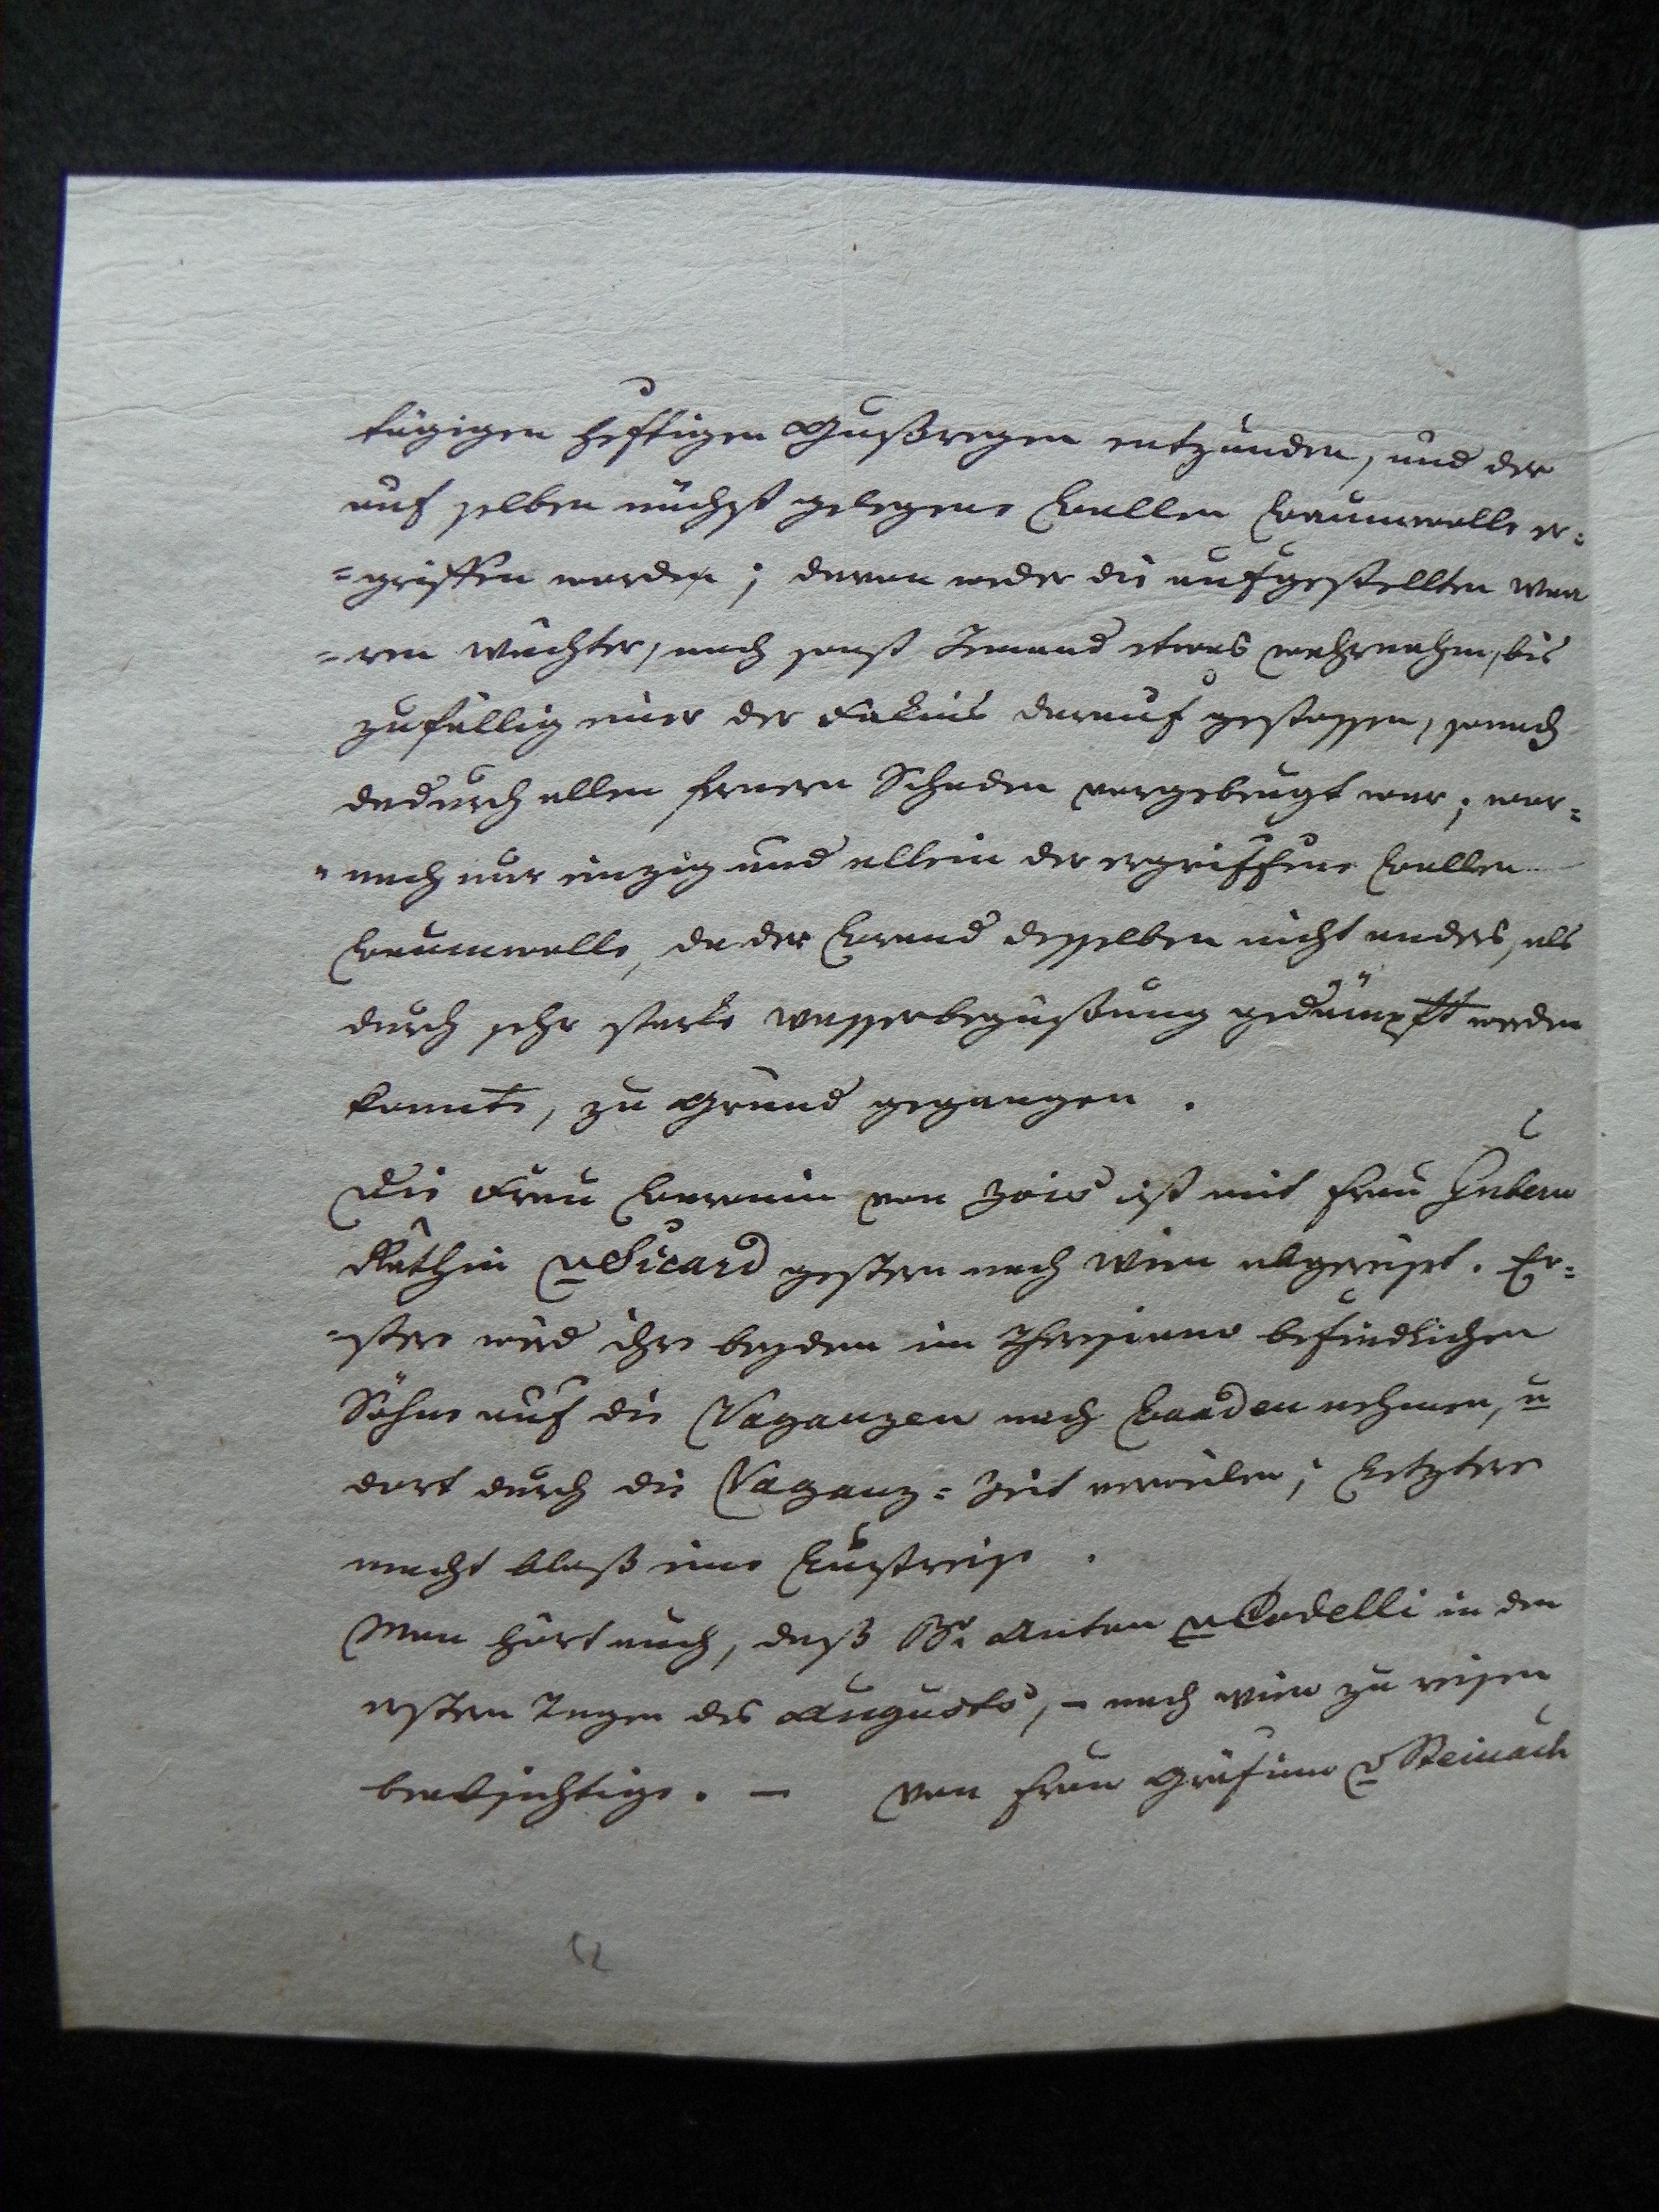 tägigen heftigen Gußregen entzunden, und der
auf selben nächst gelegene Ballen Baumwolle er=
=griffen worden; davon weder die aufgestellten Waa
=ren Wächter, noch sonst Jemand etwas wahrnahm, bis
zufällig einer der Fakins darauf gestossen, sonach
dadurch allen fernern Schaden vorgebeugt war; wor=
=nach nur einzig und allein der ergriffene Ballen
Baumwolle, da der Brand desselben nicht anders, als
durch sehr starke Wasserbegüßung gedämpft werden
konnte, zu Grund gegangen.
Die Frau Baronin von Zois ist mit Frau Gubern
Räthin v Sicard gestern nach Wien abgereist. Er=
=stere wird ihre beyden im Theresiano befindlichen
Söhne auf die Vaganzen nach Baaden nehmen, u
dort durch die Vaganz=Zeit verweilen; Letztere
macht bloß eine Lustreise.
Man hört auch, daß Br Anton v Codelli in den
ersten Tagen des Augusts, – nach Wien zu reisen
beabsichtige. – Von Frau Gräfinn v Steinach
52